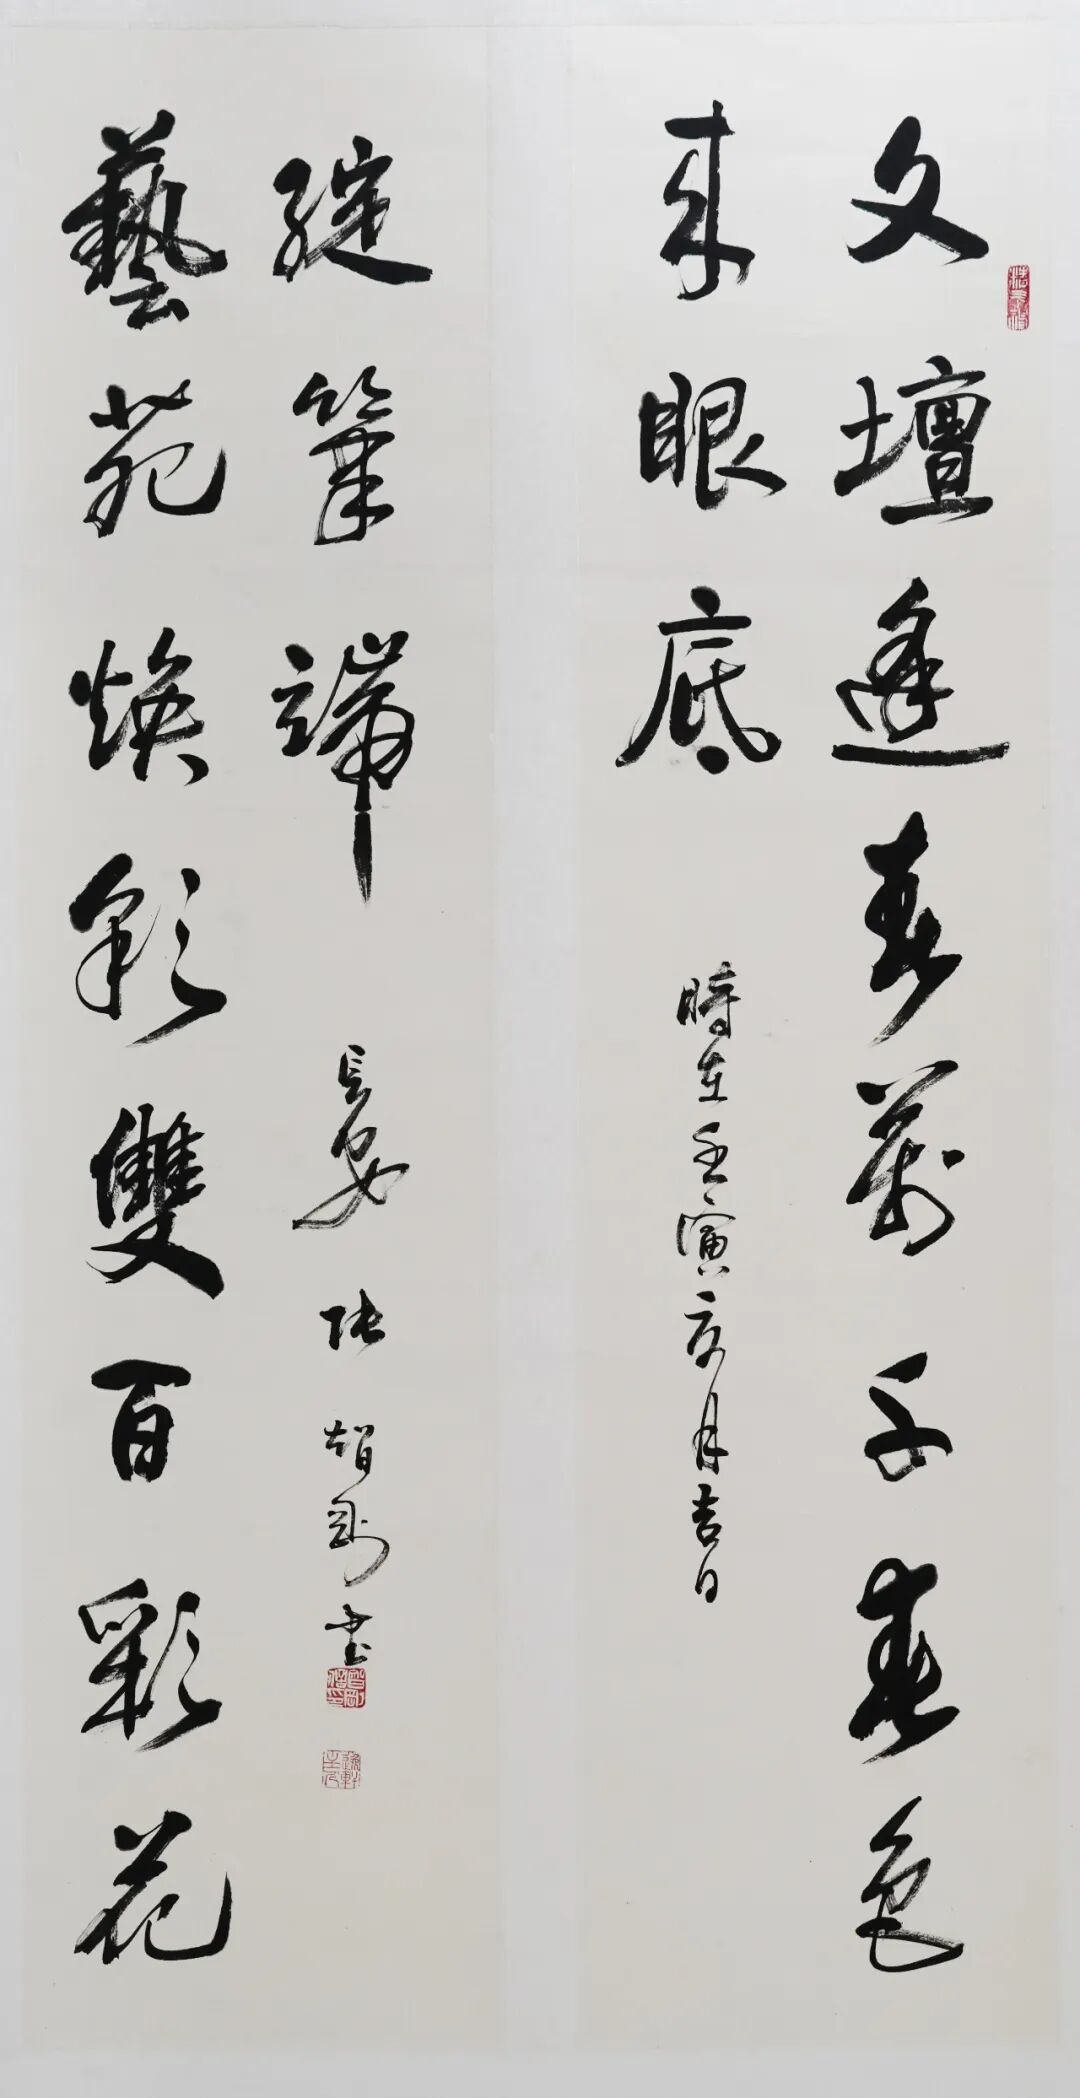 文壇逢春萬千春色
来眼底
時在壬寅夏月吉日
藝苑煥彩雙百彩花
綻筆端
長安張智剛書